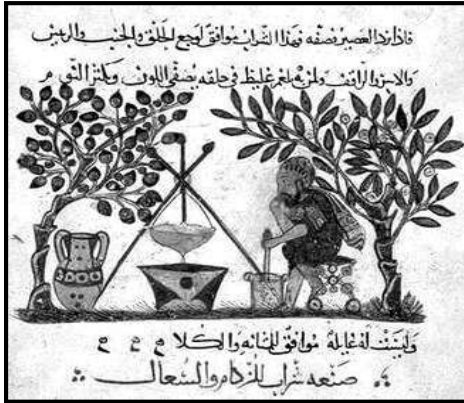 فاذا برد العصير نصفه فهذا الشراب موافق لوجع الحلق والجنب والرئتين
والاسترخا ولمن به بلغم غليظ في حلقه يصفي اللون ويكثر النوم
وليست له غايلة موافق للمثانه والكلا
صنعه شراب للزكام والسعال